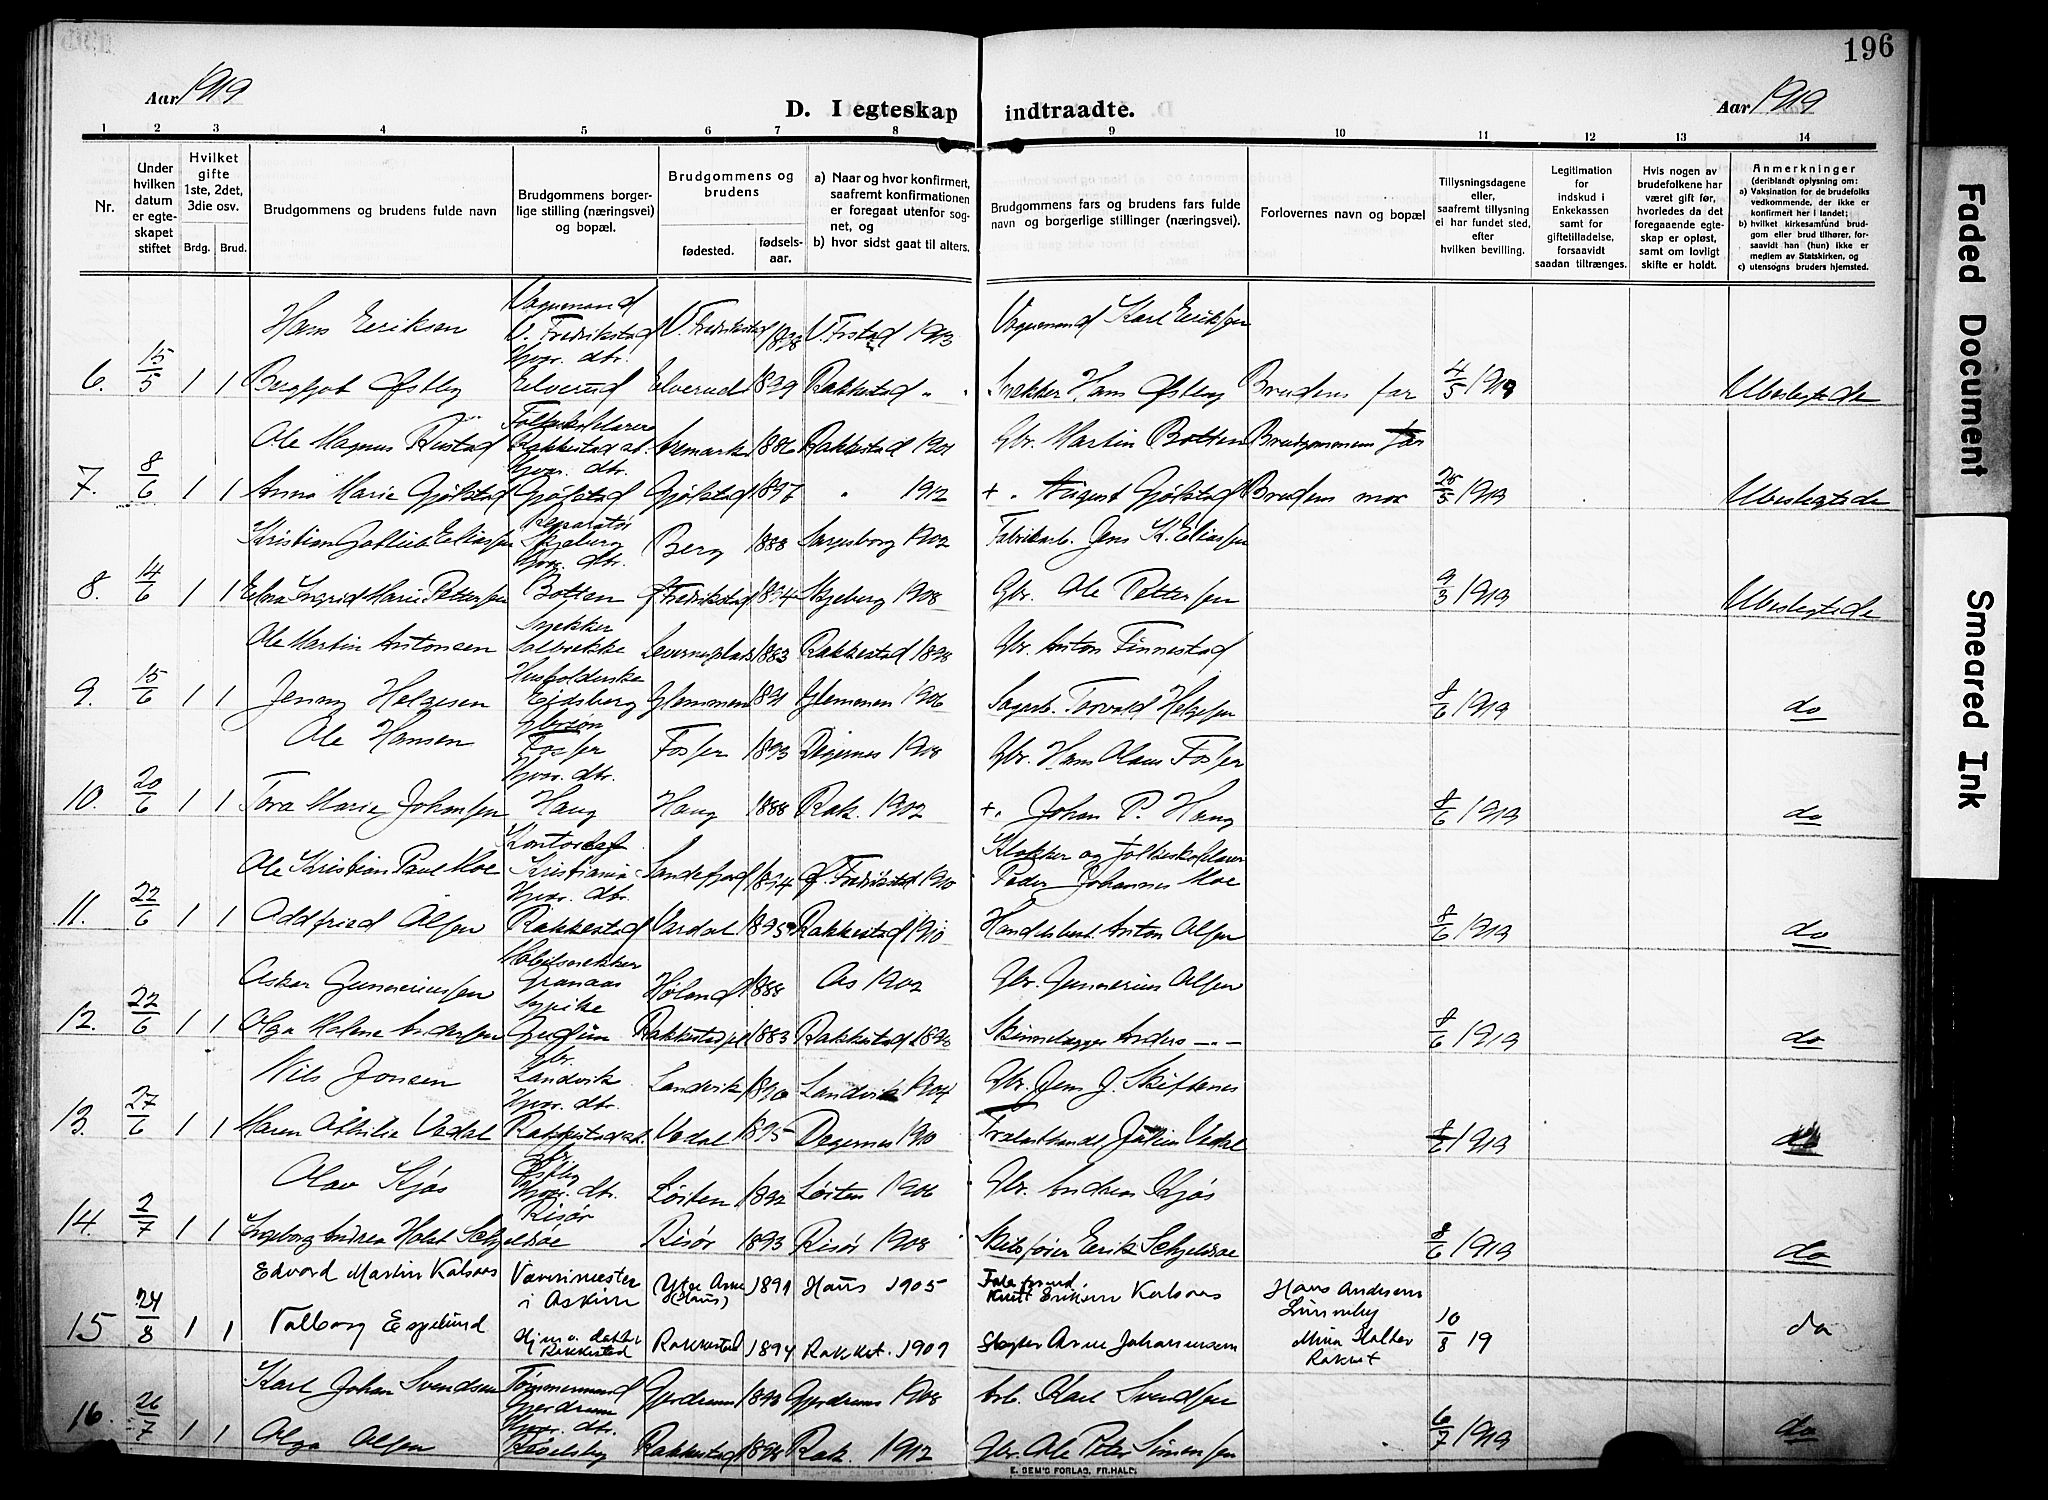 196
Aar 1919
D. I egteskap indtraadte.
Aar 1919
1 2 3 4 5 6 7 8 9 10 11 12 13 14
Nr.
Under hvilken datum er egteskapet stiftet
Hvilket gifte 1ste, 2det, 3die osv.
Brdg. Brud.
Brudgommens og brudens fulde navn
Brudgommens borgerlige stilling (næringsvei) og bopæl.
Brudgommens og brudens
fødested. fødselsaar.
a) Naar og hvor konfirmert, saafremt konfirmationen er foregaat utenfor sognet, og
b) hvor sidst gaat til alters.
Brudgommens fars og brudens fars fulde navn og borgerlige stillinger (næringsvei).
Forlovernes navn og bopæl
Tillysningsdagene eller, saafremt tillysning ei har fundet sted, efter hvilken bevilling.
Legitimation for indskud i Enkekassen samt for giftetilladelse, forsaavidt saadan tiltrænges.
Hvis nogen av brudefolkene har været gift før, hvorledes da det foregaaende egteskap er opløst, samt om lovligt skifte er holdt.
Anmerkninger
(deriblandt oplysning om:
a) Vaksination for de brudefolks vedkommende, der ikke er konfirmert her i landet;
b) hvilket kirkesamfund brudgom eller brud tilhører, forsaavidt han (hun) ikke er medlem av Statskirken, og
c) utensogns bruders hjemsted.
Hans Eriksen V. Fredrikstad V. Fredrikstad 1898 V. Frstad 1913 Karl Eriksen
6. 15/5 1 1 Bergljot Østby Hjvr. dtr. Elverud Elverud 1899 Rakkestad " Snekker Hans Østby Brudens far 4/5 1919 Ubeslegtede
Ole Magnus Rustad Rakkestad Aremark 1886 Rakkestad 1901 Gbr. Martin Botten Brudgommens far
7. 8/6 1 1 Anna Marie Gjølstad Hjvr. dtr. Gjølstad Gjølstad 1897 " 1912 + " August Gjølstad Brudens mor 25/5 1919 Ubeslegtede
Kristian Gotlieb Eliassen Reparatør Skjeberg Berg 1888 Sarpsborg 1902 Fabrikarb. Jens K. Eliassen
8. 14/6 1 1 Ingrid Marie Pettersen Hjvr. dtr. Botten Fredrikstad 1894 Skjeberg 1908 Gbr. Ole Pettersen 9/3 1919 Ubeslegtede
Ole Martin Antonsen Snekker 1883 Rakkestad 1898 Gbr. Anton Finnestad
9. 15/6 1 1 Jenny Helgesen Husholderske Eidsberg Glemmen 1891 Glemmen 1906 Sagarb. Torvald Helgesen 8/6 1919 do
Ole Hansen Gbrsøn Fosser Fosser 1893 Degernes 1908 Gbr. Hans Olaus Fosser
10. 20/6 1 1 Tora Marie Johansen Hjvr. dtr. Haug Haug 1888 Rak. 1902 +. Johan P. Haug 8/6 1919 do
Ole Kristian Paul Moe Kristiania Sandefjord 1894 Fredrikstad 1910 Klokker og folkeskolelærer Peder Johannes Moe
11. 22/6 1 1 Oddfried Olsen Hjvr. dtr. Rakkestad Vardal 1895 Rakkestad 1910 Handelsbest. Anton Olsen 8/6 1919 do
Asker Gunneriussen Møbelsnekker Granaas Høland 1888 As 1902 Gbr. Gunnerius Olsen
12. 22/6 1 1 Olga Helene Andersen Sypike Rakkestad 1883 Rakkestad 1898 Anders - " - 8/6 1919 do
Nils Jonsen Gbr. Landvik Landvik 1890 Landvik 1904 Gbr. Jens J. Skiftenes
13. 27/6 1 1 Maren Othilie Vedal Hjvr. dtr. Rakkestad Vedal 1895 Degernes 1910 Vedal 8/6 1919 do
Olav Kjøs Gbr. Østby Løiten 1892 Løiten 1906 Gbr. Andreas Kjøs
14. 2/7 1 1 Ingeborg Andrea Holst Schjelsøe Hjvr. dtr. Risør Risør 1893 Risør 1908 Skibsfører Erik Schjelsøe 8/6 1919 do
Edvard Martin Kalsaas Værimester i Askim Ytre Arne (Haus) 1891 Haus 1905 Knut Eriksen Kalsaas Hans Andersen Linneby
15 24/8 1 1 Valborg Espelund Rakkestad Rakkestad 1894 Rakkst. 1909 Arne Johannessen Mina Stalber Rakkst 10/8 19 do
Karl Johan Svendsen Tømmermand Gjerdrum Gjerdrum 1893 Gjerdrum 1908 Arb. Karl Svendsen
16. 26/7 1 1 Olga Olsen Hjvr. dtr. Rakkestad 1898 Rak. 1912 Gbr. Ole Peter Simensen 6/7 1919 do
E. SEM'S FORLAG, FR.HALD.
Faded Document
Smeared Ink